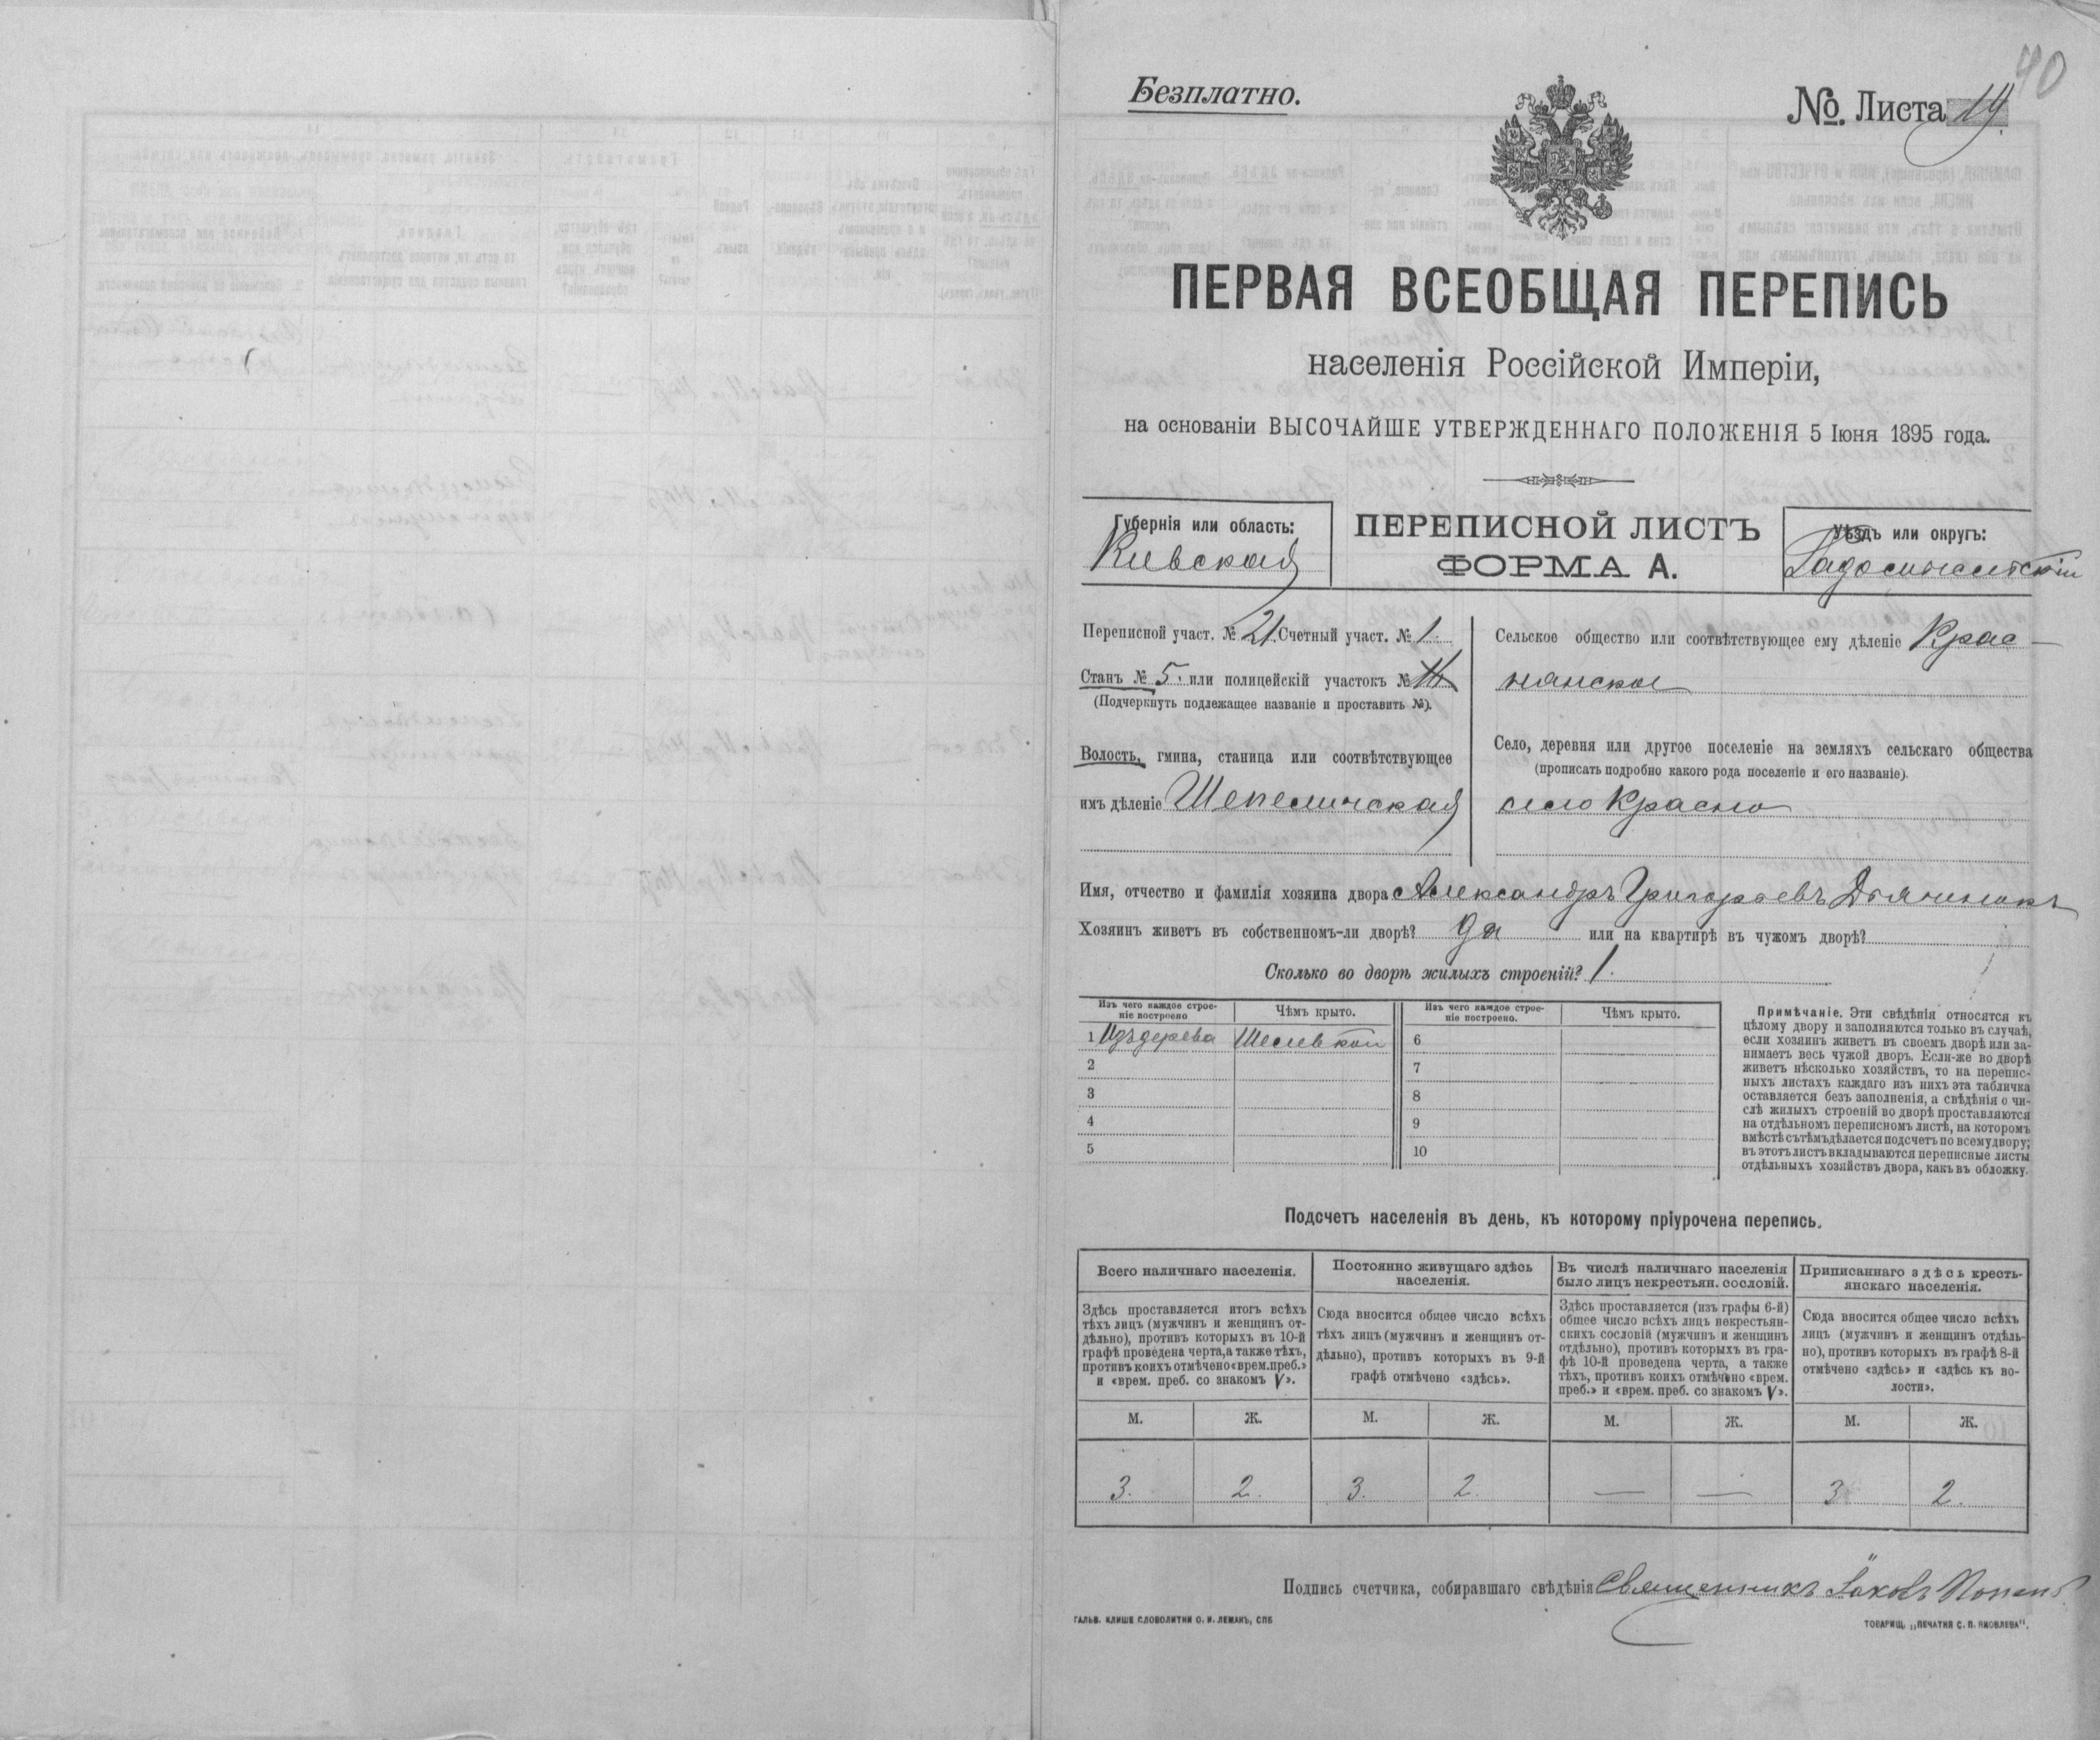 40
Безплатно.
№. Листа 19.
ПЕРВАЯ ВСЕОБЩАЯ ПЕРЕПИСЬ
населенія Россійской Имперіи,
на основаніи ВЫСОЧАЙШЕ УТВЕРЖДЕННАГО ПОЛОЖЕНІЯ 5 Іюня 1895 года.
Губернія или область:
Киевская
ПЕРЕПИСНОЙ ЛИСТЪ
ФОРМА А.
Уѣздъ или округъ:
Радомысльскій
Переписной участ. № 21. Счетный участ. № 1.
Станъ № 5. или полицейскій участокъ №
(Подчеркнуть подлежащее названіе и проставить №).
Волость, гмина, станица или соотвѣтствующее
имъ дѣленіе Шепеличская
Сельское общество или соотвѣтствующее ему дѣленіе Крас-
нянское
Село, деревня или другое поселеніе на земляхъ сельскаго общества
(прописать подробно какого рода поселеніе и его названіе).
село Красно
Имя, отчество и фамилія хозяина двора Александръ Григорьевъ
Хозяинъ живетъ въ собственномъ-ли дворѣ? да или на квартирѣ въ чужомъ дворѣ?
Сколько во дворѣ жилыхъ строеній? 1.
Изъ чего каждое строе-
ніе построено
Чѣмъ крыто.
Изъ чего каждое строе-
ніе построено.
Чѣмъ крыто.
1 Изъ дерева Шелевкой 6
2 7
3 8
4 9
5 10
Примѣчаніе. Эти свѣдѣнія относятся къ
цѣлому двору и заполняются только въ случаѣ,
если хозяинъ живетъ въ своемъ дворѣ или за-
нимаетъ весь чужой дворъ. Если-же во дворѣ
живетъ нѣсколько хозяйствъ, то на перепис-
ныхъ листахъ каждаго изъ нихъ эта табличка
оставляется безъ заполненія, а свѣдѣнія о чи-
слѣ жилыхъ строеній во дворѣ проставляются
на отдѣльномъ переписномъ листѣ, на которомъ
вмѣстѣ съ тѣмъ дѣлается подсчетъ по всему двору;
въ этотъ листъ вкладываются переписные листы
отдѣльныхъ хозяйствъ двора, какъ въ обложку.
Подсчетъ населенія въ день, къ которому пріурочена перепись.
Всего наличнаго населенія.
Постоянно живущаго здѣсь
населенія.
Въ числѣ наличнаго населенія
было лицъ некрестьян. сословій.
Приписаннаго здѣсь кресть-
янскаго населенія.
Здѣсь проставляется итогъ всѣхъ
тѣхъ лицъ (мужчинъ и женщинъ от-
дѣльно), противъ которыхъ въ 10-й
графѣ проведена черта, а также тѣхъ,
противъ коихъ отмѣчено «врем. преб.»
и «врем. преб. со знакомъ V».
Сюда вносится общее число всѣхъ
тѣхъ лицъ (мужчинъ и женщинъ от-
дѣльно), противъ которыхъ въ 9-й
графѣ отмѣчено «здѣсь».
Здѣсь проставляется (изъ графы 6-й)
общее число всѣхъ лицъ некрестьян-
скихъ сословій (мужчинъ и женщинъ
отдѣльно), противъ которыхъ въ гра-
фѣ 10-й проведена черта, а также
тѣхъ, противъ коихъ отмѣчено «врем.
преб.» и «врем. преб. со знакомъ V».
Сюда вносится общее число всѣхъ
лицъ (мужчинъ и женщинъ отдѣль-
но), противъ которыхъ въ графѣ 8-й
отмѣчено «здѣсь» и «здѣсь къ во-
лости».
М. Ж. М. Ж. М. Ж. М. Ж.
3. 2. 3. 2. — — 3 2.
Подпись счетчика, собиравшаго свѣдѣнія Священникъ Іаковъ
ГАЛЬВ. КЛИШЕ СЛОВОЛИТНИ О. И. ЛЕМАНЪ, СПБ
ТОВАРИЩ. „ПЕЧАТНЯ С. П. ЯКОВЛЕВА".